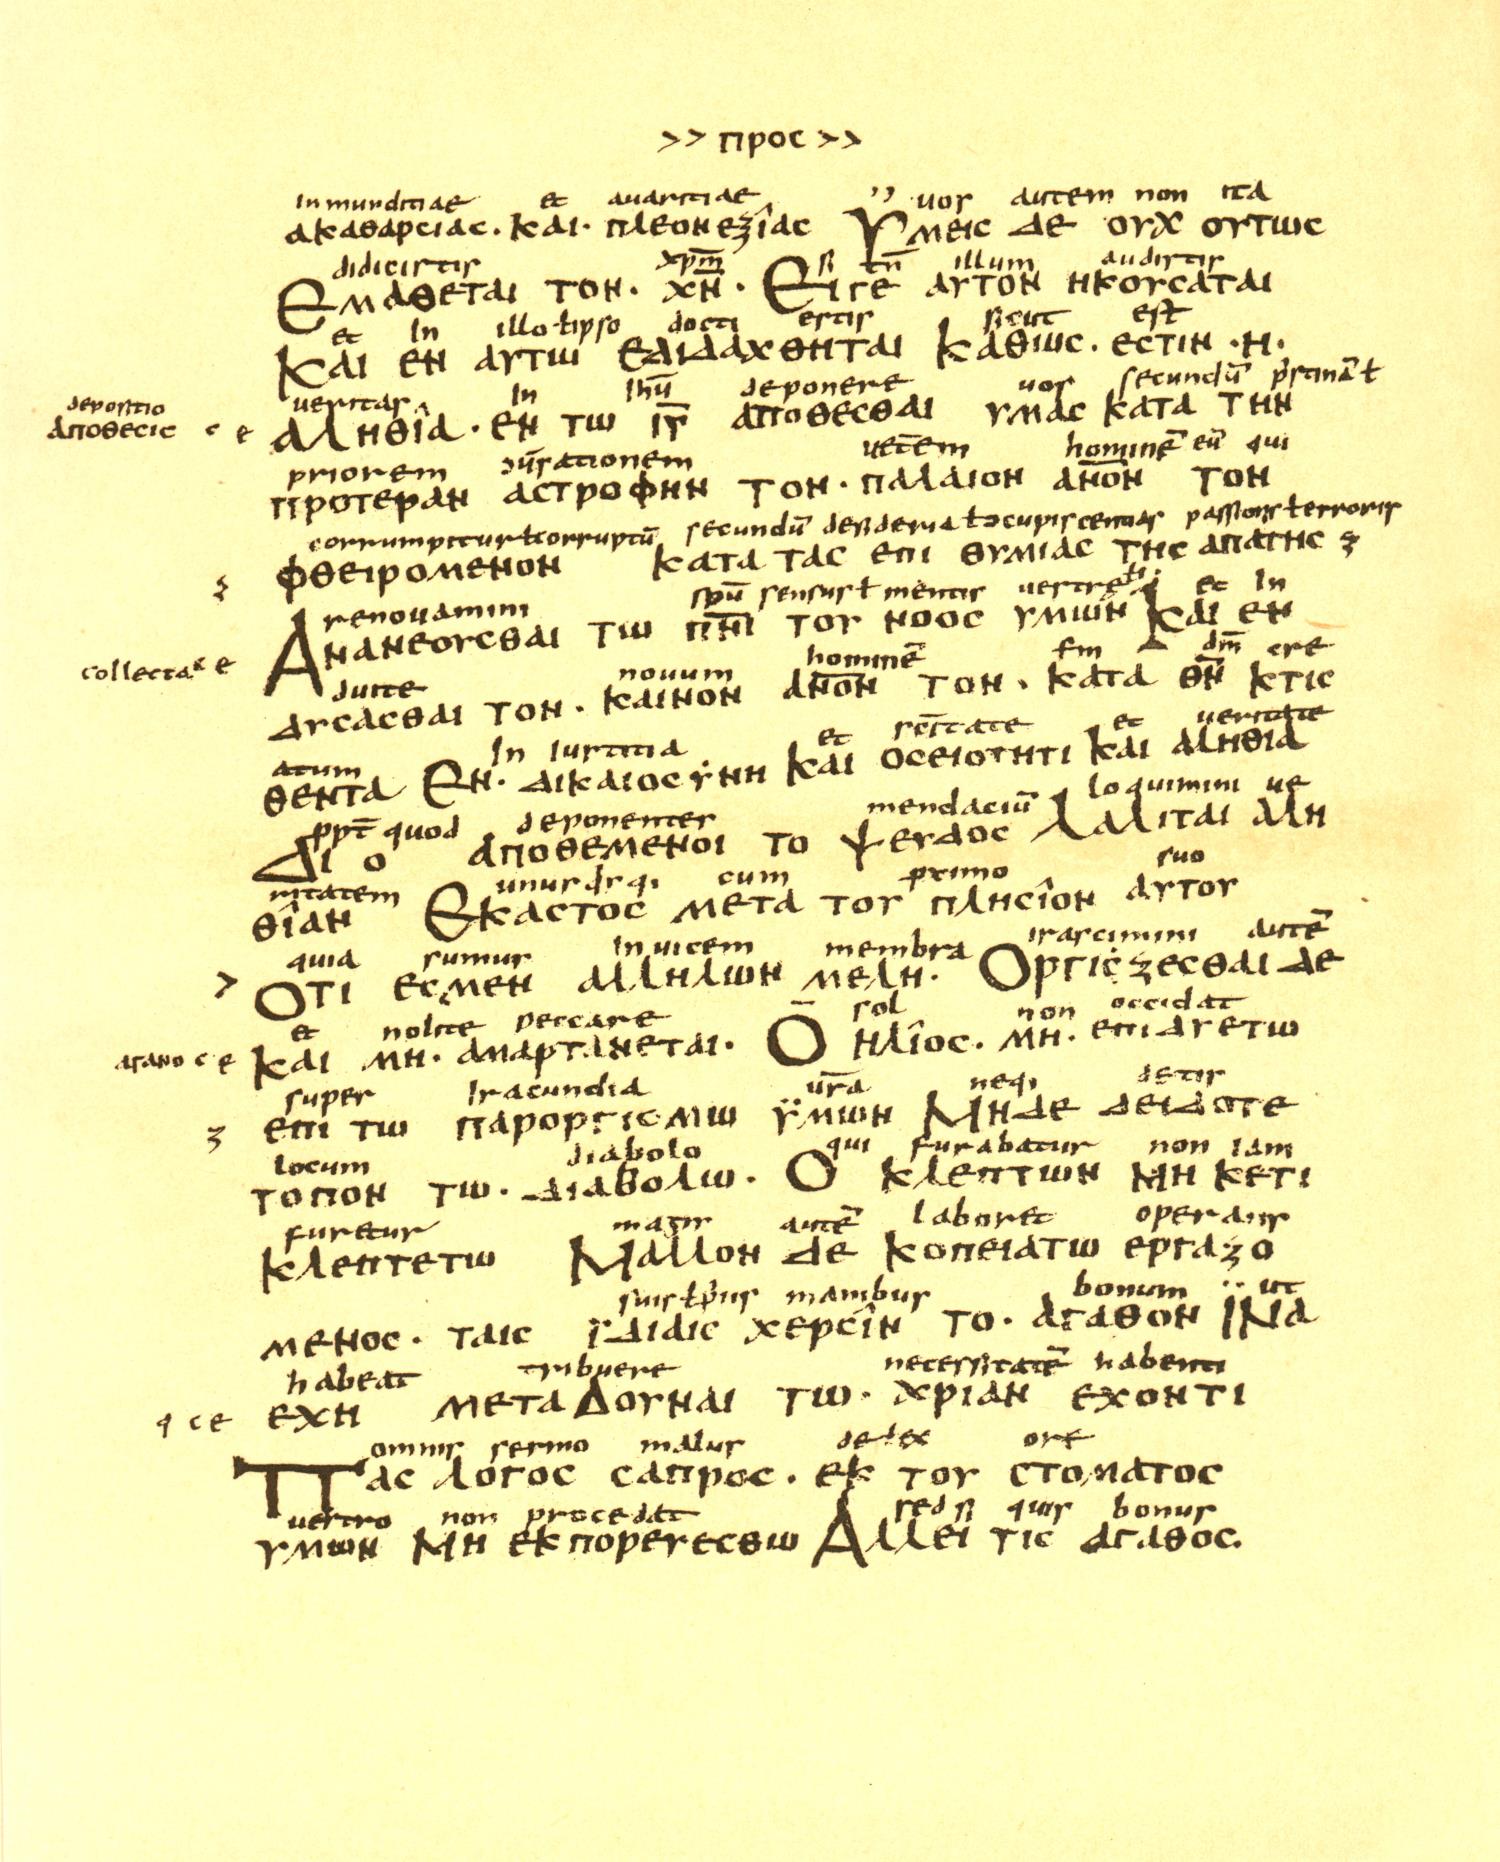 >> προς >>
inmunditiae et auaritiae uos autem non ita
ακαθαρϲιαϲ· και· πλεονεξîαϲ Υμειϲ δε ουχ ουτωϲ
didicistis xpm̅ si tn̅ illum audistis
Εμαθεται τον· χν̅· Ει γε αυτον ηκουϲαται
et in illo ł ipso docti estis sicut est
Και εν αυτω εδιδαχθηται καθωϲ· εϲτιν ·η·
depositio ueritas in ihu̅ deponere uos secundu̅
αποθεϲιϲ ϲ ε αληθîα· εν τω ιυ̅ αποθεϲθαι υμαϲ κατα την
priorem uete̅m homine̅ eu̅ qui
προτεραν αϲτροφην τον· παλαιον ανον̅ τον
corrumpitur ł corruptu̅ secundu̅ desideria ł terroris
φθειρομενον κατα ταϲ επι θυμιαϲ τηϲ απατηϲ
renouamini spu̅ sensus ł mentis uestre et in
Ανανεουϲθαι τω πνι̅ του νοοϲ υμων και εν
collecta ϲ ε duite nouum homine̅ dm̅ cre
δυϲαϲθαι τον· καινον ανον̅ τον· κατα θν̅ κτιϲ
atum in iustitia et sc̅itate et ueritate
θεντα Εν· δικαιοϲυνη και οϲειοτητι και αληθια
ppt̅ quod deponentes mendaciu̅ loquimini ue
Δι ο αποθεμενοι το ψευδοϲ λαλιται αλη
ritatem cum primo suo
θîαν Εκαϲτοϲ μετα του πληϲîον αυτου
quia sumus inuicem membra irascimini aute̅
> Οτι εϲμεν αλληλων μελη· Οργιϲζεϲθαι δε
et nolite peccare sol non occidat
ϲ ε και μη· αμαρτανεται· Ο̅ ηλîοϲ· μη· επι δυετω
super iracundia ur̅a neqi detis
επι τω παροργιϲμω ϋμων Μηδε δειδοτε
locum diabolo qui furabatur non iam
τοπον τω· διαβολω· Ο κλεπτων μη κετι
furetur magis aute̅ laboret operans
κλεπτετω Μαλλον δε κοπειατω εργαζο
suis ł ppiis manibus bonum ut
μενοϲ· ταιϲ ϊδιαιϲ χερϲîν το· αγαθον ϊνα
habeat tribuere necessitate̅ habenti
q ϲ ε εχη μεταδουναι τω· χριαν εχοντι
omnis sermo malus de ł ex ore
Παϲ λογοϲ ϲαπροϲ· εκ του ϲτοματοϲ
uestro non procedat sed si quis bonus
υμων μη εκπορευεϲθω Αλλει τιϲ αγαθοϲ·